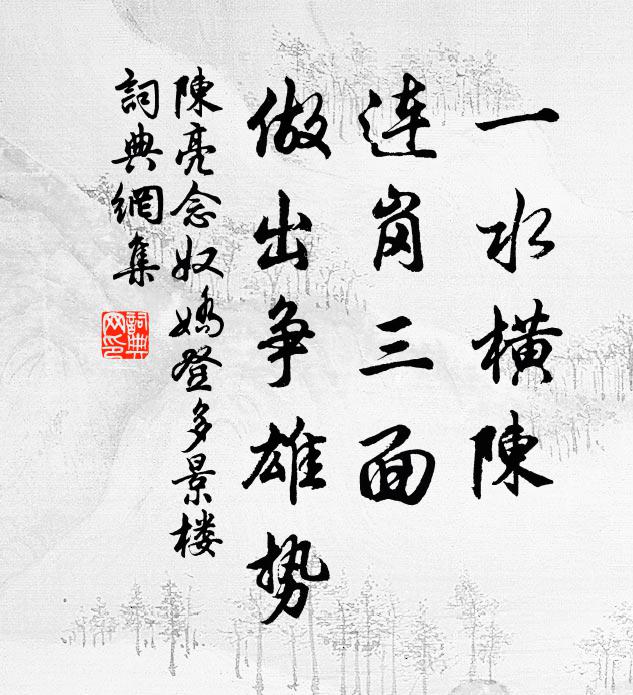 一水橫陳
连岗三面
做出争雄势
陳亮念奴嬌登多景楼
詞典網集
詞典网印